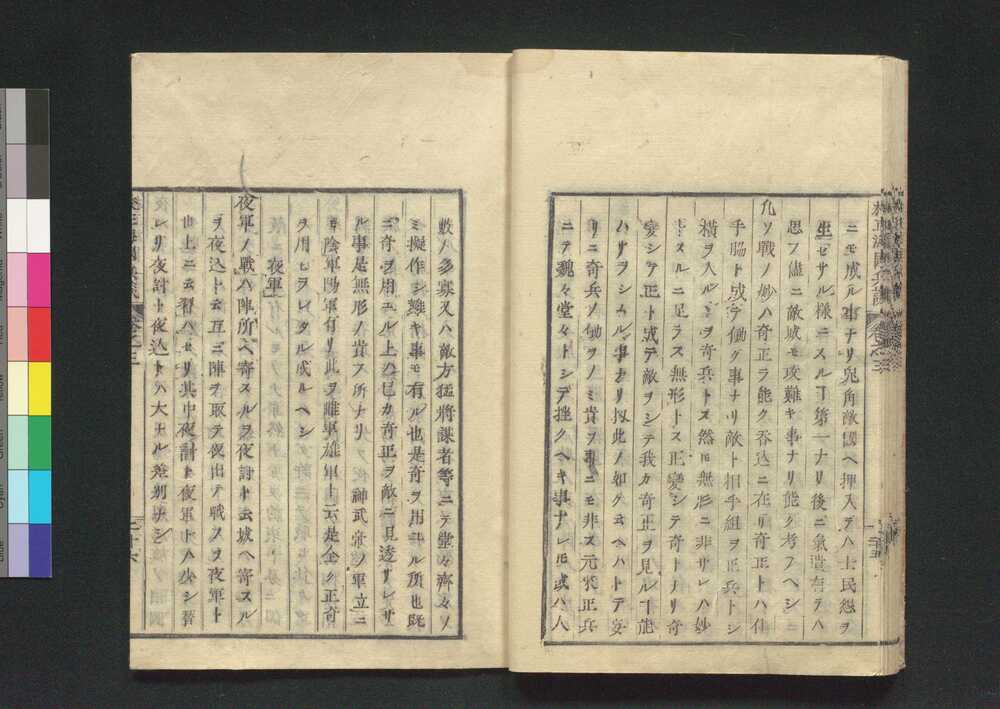 ニモ成ル事ナリ兎角敵國ヘ押入テハ士民怨ヲ
生セサル様ニスルヿ第一ナリ後ニ氣遣有テハ
思フ儘ニ敵城モ攻難キ事ナリ能ク考フヘシ
凡ソ戰ノ妙ハ奇正ヲ能ク呑込ニ在リ奇正トハ仕
手脇ト成テ働ク事ナリ敵ト相手組ヲ正兵トシ
横ヲ入ルヽヲ奇兵トス然𪜈無形ニ非サレハ妙
トスルニ足ラス無形トス正變シテ奇トナリ奇
變シテ正ト成テ敵ヲシテ我カ奇正ヲ見ルヿ能
ハサラシムル事ナリ扨此ノ如ク云ヘハトテ妄
リニ奇兵ノ働ヲノミ貴ヲ事ニモ非ス元來正兵
ニテ魏々堂々トシテ挫クヘキ事ナレ𪜈或ハ人
數ノ多寡又ハ敵方猛將謀者等ニテ堂々齊々ノ
ミ擬作シ難キ事モ有ル也是奇ヲ用ル所也既
ニ奇ヲ用ユル上ハ己カ奇正ヲ敵ニ見透サレサ
ル事是無形ノ貴フ所ナリ 神武帝ノ軍立ニ
モ陰軍陽軍有リ此ヲ雌軍雄軍ト云是全ク正奇
ヲ用ヒラレタル成ルヘシ
夜軍
夜軍ノ戰ハ陣所ヘ寄スルヲ夜討ト云城ヘ寄スル
ヲ夜込ト云互ニ陣ヲ取テ夜出テ戰フヲ夜軍ト
世上ニ云習ハセリ其中夜討ト夜軍トハ少シ替
レリ夜討ト夜込トハ大ナル差別無シ